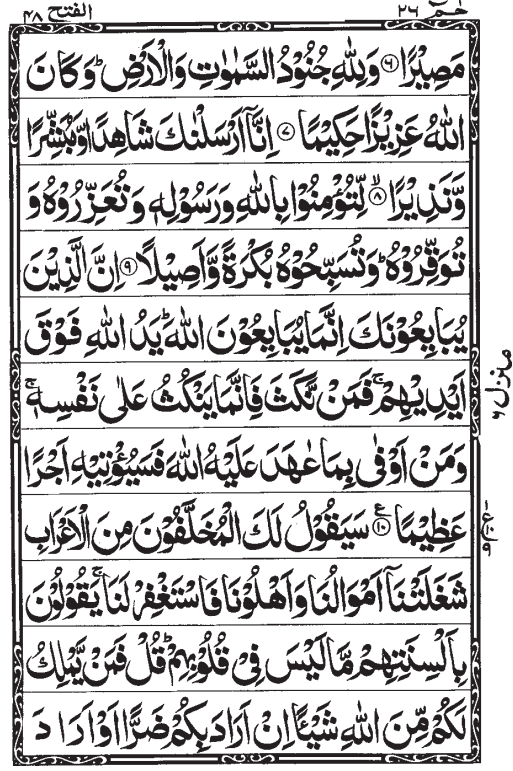 حٰمٓ ٢٦
الفتح ٤٨
مَصِيْرًا ﴿٦﴾ وَلِلّٰهِ جُنُوْدُ السَّمٰوٰتِ وَالْاَرْضِ ؕ وَكَانَ
اللّٰهُ عَزِيْزًا حَكِيْمًا ﴿٧﴾ اِنَّاۤ اَرْسَلْنٰكَ شَاهِدًا وَّمُبَشِّرًا
وَّنَذِيْرًا ۙ﴿٨﴾ لِّتُؤْمِنُوْا بِاللّٰهِ وَرَسُوْلِهٖ وَتُعَزِّرُوْهُ وَ
تُوَقِّرُوْهُ ؕ وَتُسَبِّحُوْهُ بُكْرَةً وَّاَصِيْلًا ﴿٩﴾ اِنَّ الَّذِيْنَ
يُبَايِعُوْنَكَ اِنَّمَا يُبَايِعُوْنَ اللّٰهَ ؕ يَدُ اللّٰهِ فَوْقَ
اَيْدِيْهِمْ ۚ فَمَنْ نَّكَثَ فَاِنَّمَا يَنْكُثُ عَلٰى نَفْسِهٖ ۚ
وَمَنْ اَوْفٰى بِمَا عٰهَدَ عَلَيْهُ اللّٰهَ فَسَيُؤْتِيْهِ اَجْرًا
عَظِيْمًا ﴿١٠﴾ ع سَيَقُوْلُ لَكَ الْمُخَلَّفُوْنَ مِنَ الْاَعْرَابِ
شَغَلَتْنَاۤ اَمْوَالُنَا وَاَهْلُوْنَا فَاسْتَغْفِرْ لَنَا ۚ يَقُوْلُوْنَ
بِاَلْسِنَتِهِمْ مَّا لَيْسَ فِيْ قُلُوْبِهِمْ ؕ قُلْ فَمَنْ يَّمْلِكُ
لَكُمْ مِّنَ اللّٰهِ شَيْئًا اِنْ اَرَادَ بِكُمْ ضَرًّا اَوْ اَرَادَ
منزل ٦
ع ١٠ ٩